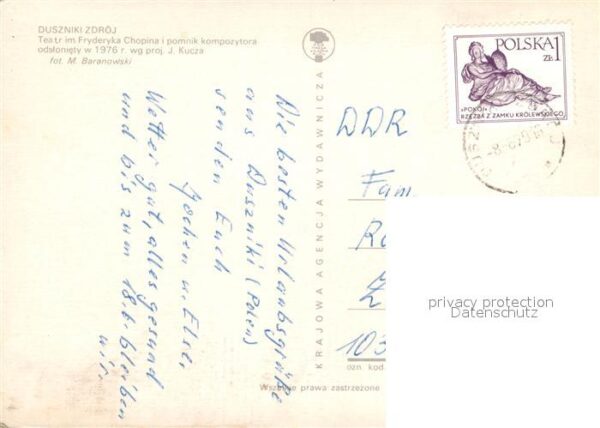 DUSZNIKI ZDRÓJ
Teatr im. Fryderyka Chopina i pomnik kompozytora
odsłonięty w 1976 r. wg proj. J. Kucza
fot. M. Baranowski
Die besten Urlaubsgrüße
aus Duszniki (Polen)
senden Euch
Jochen u. Else,
Wetter gut, alles gesund
und bis zum 18.6. bleiben
wir.
KRAJOWA AGENCJA WYDAWNICZA
POLSKA
ZŁ 1
«POKÓJ»
RZEŹBA Z ZAMKU KRÓLEWSKIEGO
DDR
Fam
103
ozn kod.
Wszelkie prawa zastrzeżone
privacy protection
Datenschutz